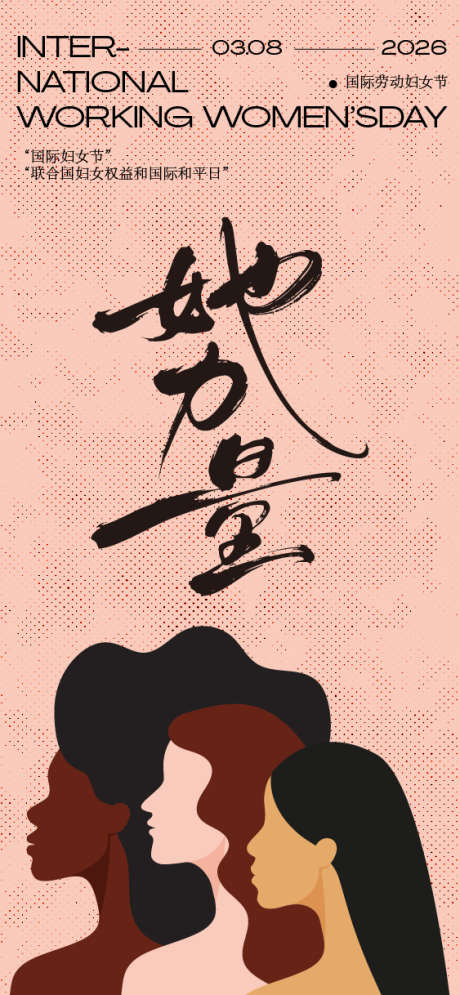 INTER- 03.08 2026
NATIONAL
• 国际劳动妇女节
WORKING WOMEN'SDAY
“国际妇女节”
“联合国妇女权益和国际和平日”
她
力
量